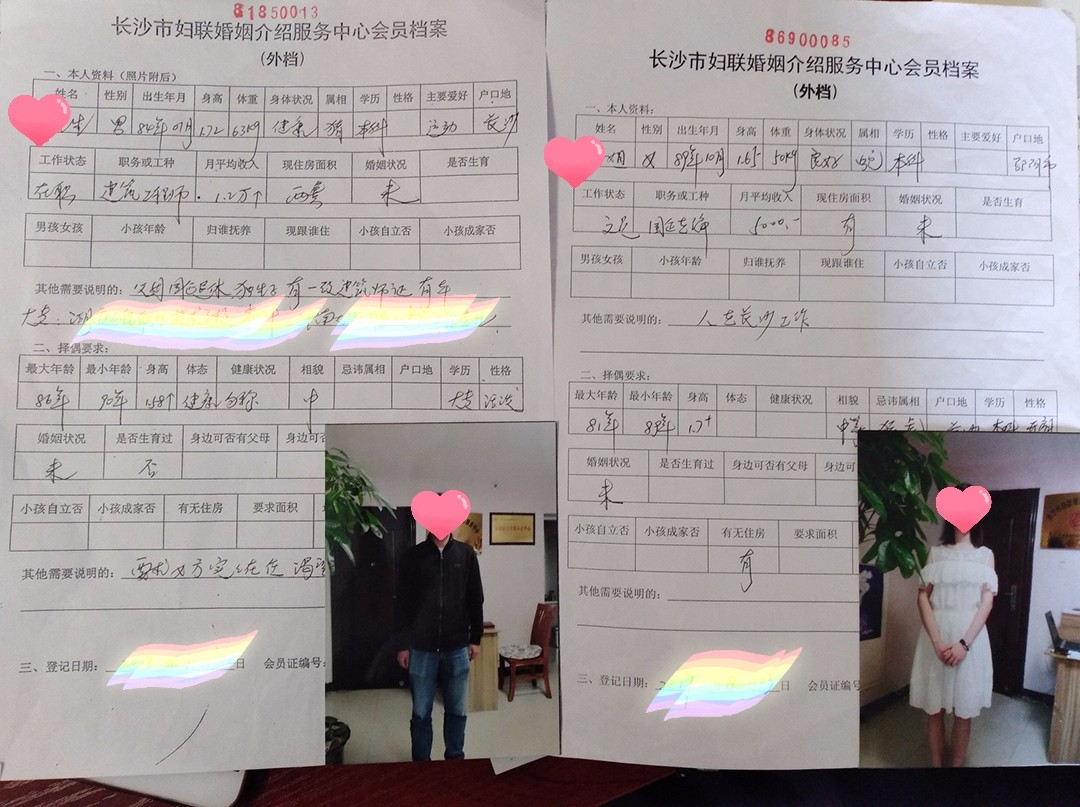 81850013
长沙市妇联婚姻介绍服务中心会员档案
(外档)
一、本人资料（照片附后）
姓名 性别 出生年月 身高 体重 身体状况 属相 学历 性格 主要爱好 户口地
生 男 84年 1.72 63kg 健康 猪 本科 运动 长沙
工作状态 职务或工种 月平均收入 现住房面积 婚姻状况 是否生育
在职 建筑工程师 1.2万↑ 两套 未
男孩女孩 小孩年龄 归谁抚养 现跟谁住 小孩自立否 小孩成家否
其他需要说明的：父母国企退休 独生子 有一级建筑师证 有车
二、择偶要求：
最大年龄 最小年龄 身高 体态 健康状况 相貌 忌讳属相 户口地 学历 性格
86年 90年 1.58↑ 健康 匀称 中 大专
婚姻状况 是否生育过 身边可否有父母 身边可
未 否
小孩自立否 小孩成家否 有无住房 要求面积
其他需要说明的：
三、登记日期： 日 会员证编号:
86900085
长沙市妇联婚姻介绍服务中心会员档案
(外档)
一、本人资料:
姓名 性别 出生年月 身高 体重 身体状况 属相 学历 性格 主要爱好 户口地
女 89年10月 1.65 50kg 良好 蛇 本科
工作状态 职务或工种 月平均收入 现住房面积 婚姻状况 是否生育
5000.- 有 未
男孩女孩 小孩年龄 归谁抚养 现跟谁住 小孩自立否 小孩成家否
其他需要说明的: 人在长沙工作
二、择偶要求:
最大年龄 最小年龄 身高 体态 健康状况 相貌 忌讳属相 户口地 学历 性格
81年 89年 1.7+ 中等 本科
婚姻状况 是否生育过 身边可否有父母 身边可
未
小孩自立否 小孩成家否 有无住房 要求面积
有
其他需要说明的:
三、登记日期: 日 会员证编号